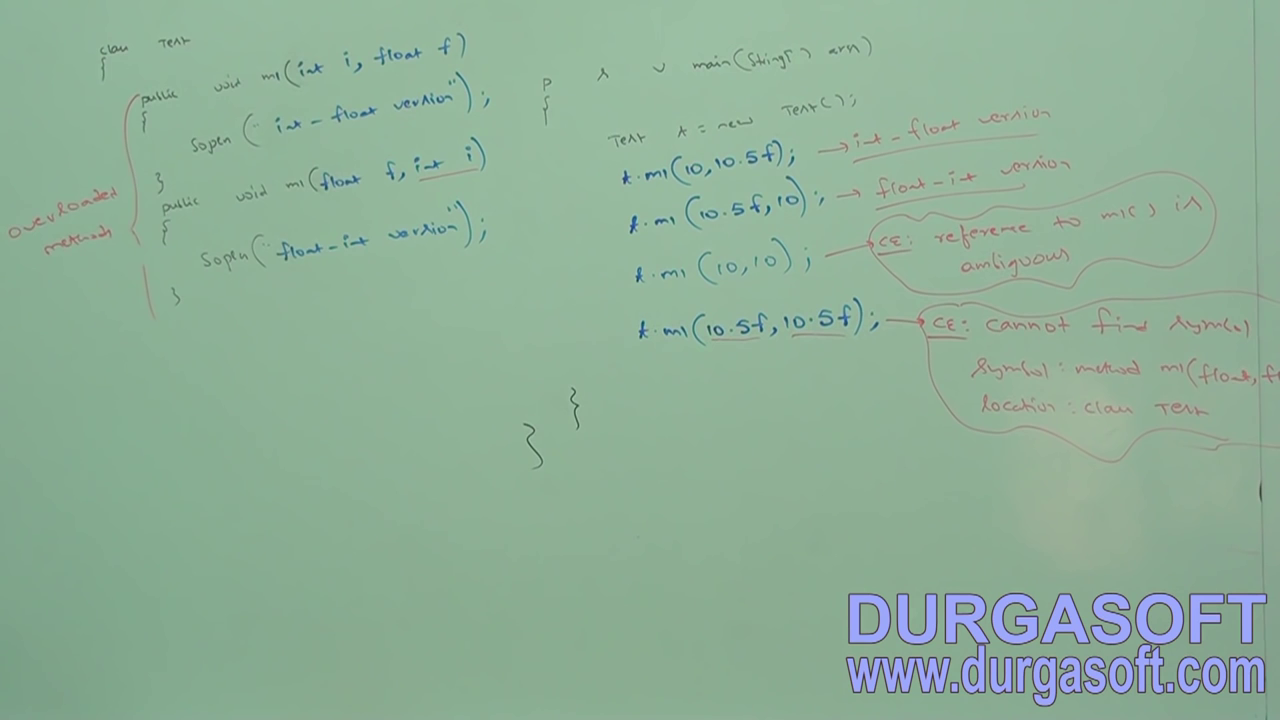 class Test
{
public void m1(int i, float f)
{
Sopln("int-float version");
}
public void m1(float f, int i)
{
Sopln("float-int version");
}
overloaded
methods
p s v main(String[] args)
{
Test t = new Test();
t.m1(10,10.5f); → int-float version
t.m1(10.5f,10); → float-int version
t.m1(10,10); → CE: reference to m1() is
ambiguous
t.m1(10.5f,10.5f); → CE: cannot find symbol
symbol: method m1(float, f
location: class Test
}
}
DURGASOFT
www.durgasoft.com